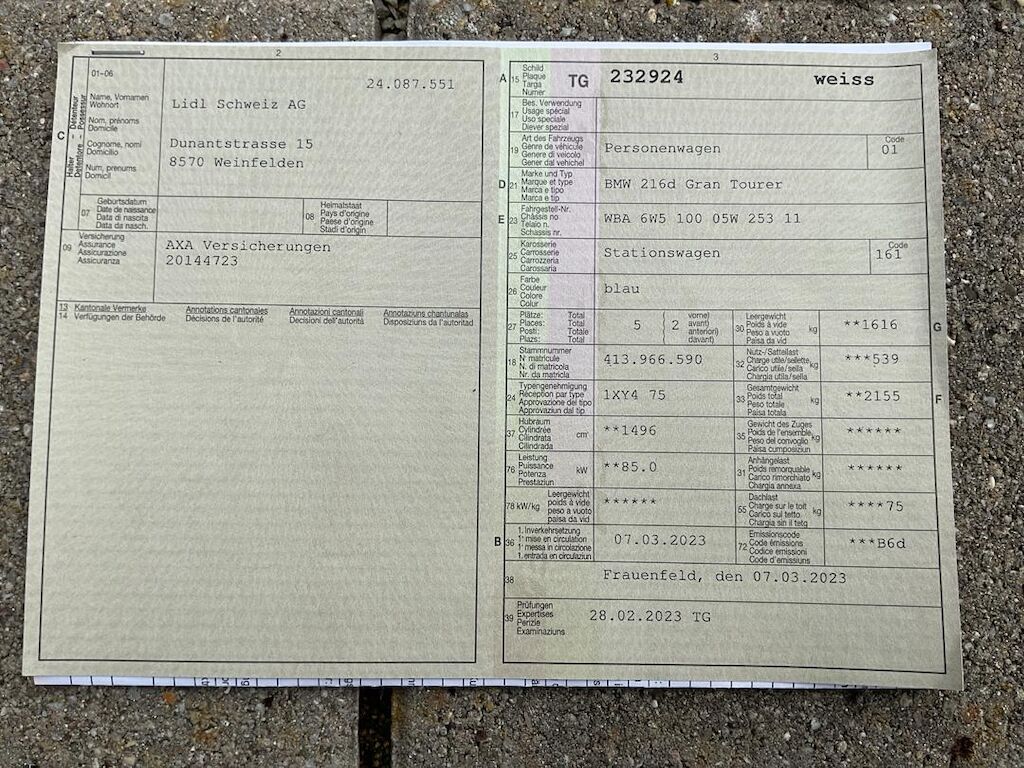 2
C
Halter – Détenteur
Detentore – Possessur
01-06
24.087.551
Name, Vornamen
Wohnort
Lidl Schweiz AG
Nom, prénoms
Domicile
Cognome, nomi
Domicilio
Dunantstrasse 15
Num, prenums
Domicil
8570 Weinfelden
07
Geburtsdatum
Date de naissance
Data di nascita
Data da nasch.
08
Heimatstaat
Pays d'origine
Paese d'origine
Stadi d'origin
09
Versicherung
Assurance
Assicurazione
Assicuranza
AXA Versicherungen
20144723
13 Kantonale Vermerke Annotations cantonales Annotazioni cantonali Annotaziuns chantunalas
14 Verfügungen der Behörde Décisions de l'autorité Decisioni dell'autorità Disposiziuns da l'autoritad
3
A 15
Schild
Plaque
Targa
Numer
TG 232924 weiss
17
Bes. Verwendung
Usage spécial
Uso speciale
Diever spezial
19
Art des Fahrzeugs
Genre de véhicule
Genere di veicolo
Gener dal vehichel
Personenwagen
Code
01
D 21
Marke und Typ
Marque et type
Marca e tipo
Marca e tip
BMW 216d Gran Tourer
E 23
Fahrgestell-Nr.
Châssis no
Telaio n.
Schassis nr.
WBA 6W5 100 05W 253 11
25
Karosserie
Carrosserie
Carrozzeria
Carossaria
Stationswagen
Code
161
26
Farbe
Couleur
Colore
Colur
blau
27
Plätze: Total
Places: Total
Posti: Totale
Plazs: Total
5 ( 2
vorne)
avant)
anteriori)
davant)
30
Leergewicht
Poids à vide
Peso a vuoto
Paisa da vid
kg
**1616
G
18
Stammnummer
N° matricule
N. di matricola
Nr. da matricla
413.966.590
32
Nutz-/Sattellast
Charge utile/sellette
Carico utile/sella
Chargia utila/sella
kg
***539
24
Typengenehmigung
Réception par type
Approvazione del tipo
Approvaziun dal tip
1XY4 75
33
Gesamtgewicht
Poids total
Peso totale
Paisa totala
kg
**2155
F
37
Hubraum
Cylindrée
Cilindrata
Cilindrada
cm³
**1496
35
Gewicht des Zuges
Poids de l'ensemble
Peso del convoglio
Paisa cumposiziun
kg
******
76
Leistung
Puissance
Potenza
Prestaziun
kW
**85.0
31
Anhängelast
Poids remorquable
Carico rimorchiato
Chargia annexa
kg
******
78 kW/kg
Leergewicht
poids à vide
peso a vuoto
paisa da vid
******
55
Dachlast
Charge sur le toit
Carico sul tetto
Chargia sin il tetg
kg
****75
B 36
1. Inverkehrsetzung
1re mise en circulation
1a messa in circolazione
1. entrada en circulaziun
07.03.2023
72
Emissionscode
Code émissions
Codice emissioni
Code d'emissiuns
***B6d
38
Frauenfeld, den 07.03.2023
39
Prüfungen
Expertises
Perizie
Examinaziuns
28.02.2023 TG